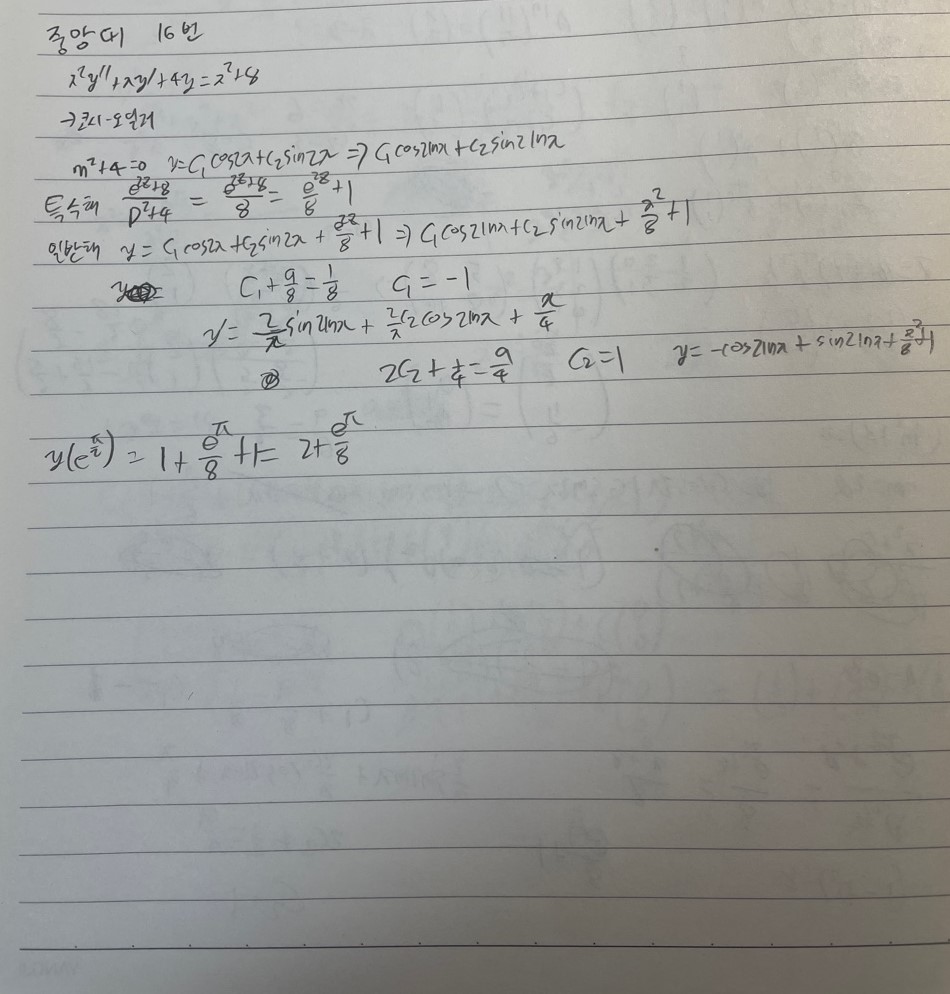 중앙대 16번
x²y''+xy'+4y=x²+8
→코시-오일러
m²+4=0 y=C₁cos2x+C₂sin2x ⇒ C₁cos2lnx+C₂sin2lnx
특수해 (e^{2z}+8)/(D²+4) = (e^{2z}+8)/8 = e^{2z}/8+1
일반해 y=C₁cos2x+C₂sin2x+e^{2z}/8+1 ⇒ C₁cos2lnx+C₂sin2lnx+x²/8+1
C₁+9/8=1/8 C₁=-1
y'=2/x sin2lnx+2/x C₂cos2lnx+x/4
2C₂+1/4=9/4 C₂=1 y=-cos2lnx+sin2lnx+x²/8+1
y(e^{π/2})=1+e^π/8+1=2+e^π/8